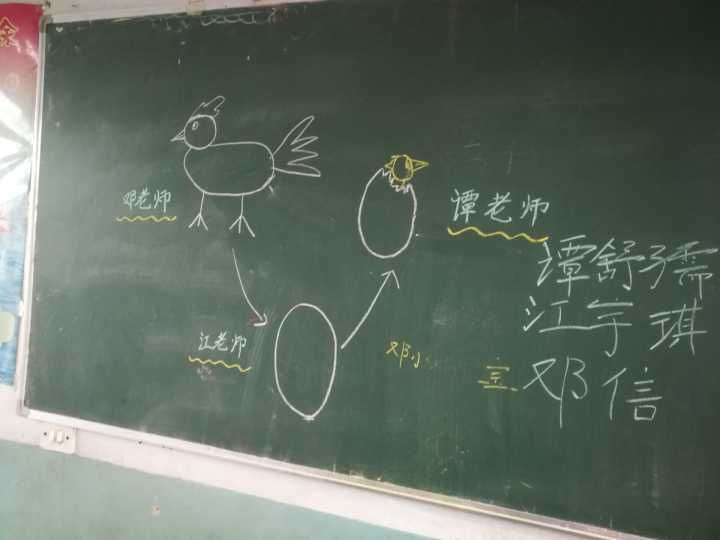 邓老师
谭老师
谭舒孺
江老师
江宇琪
邓小
邓信